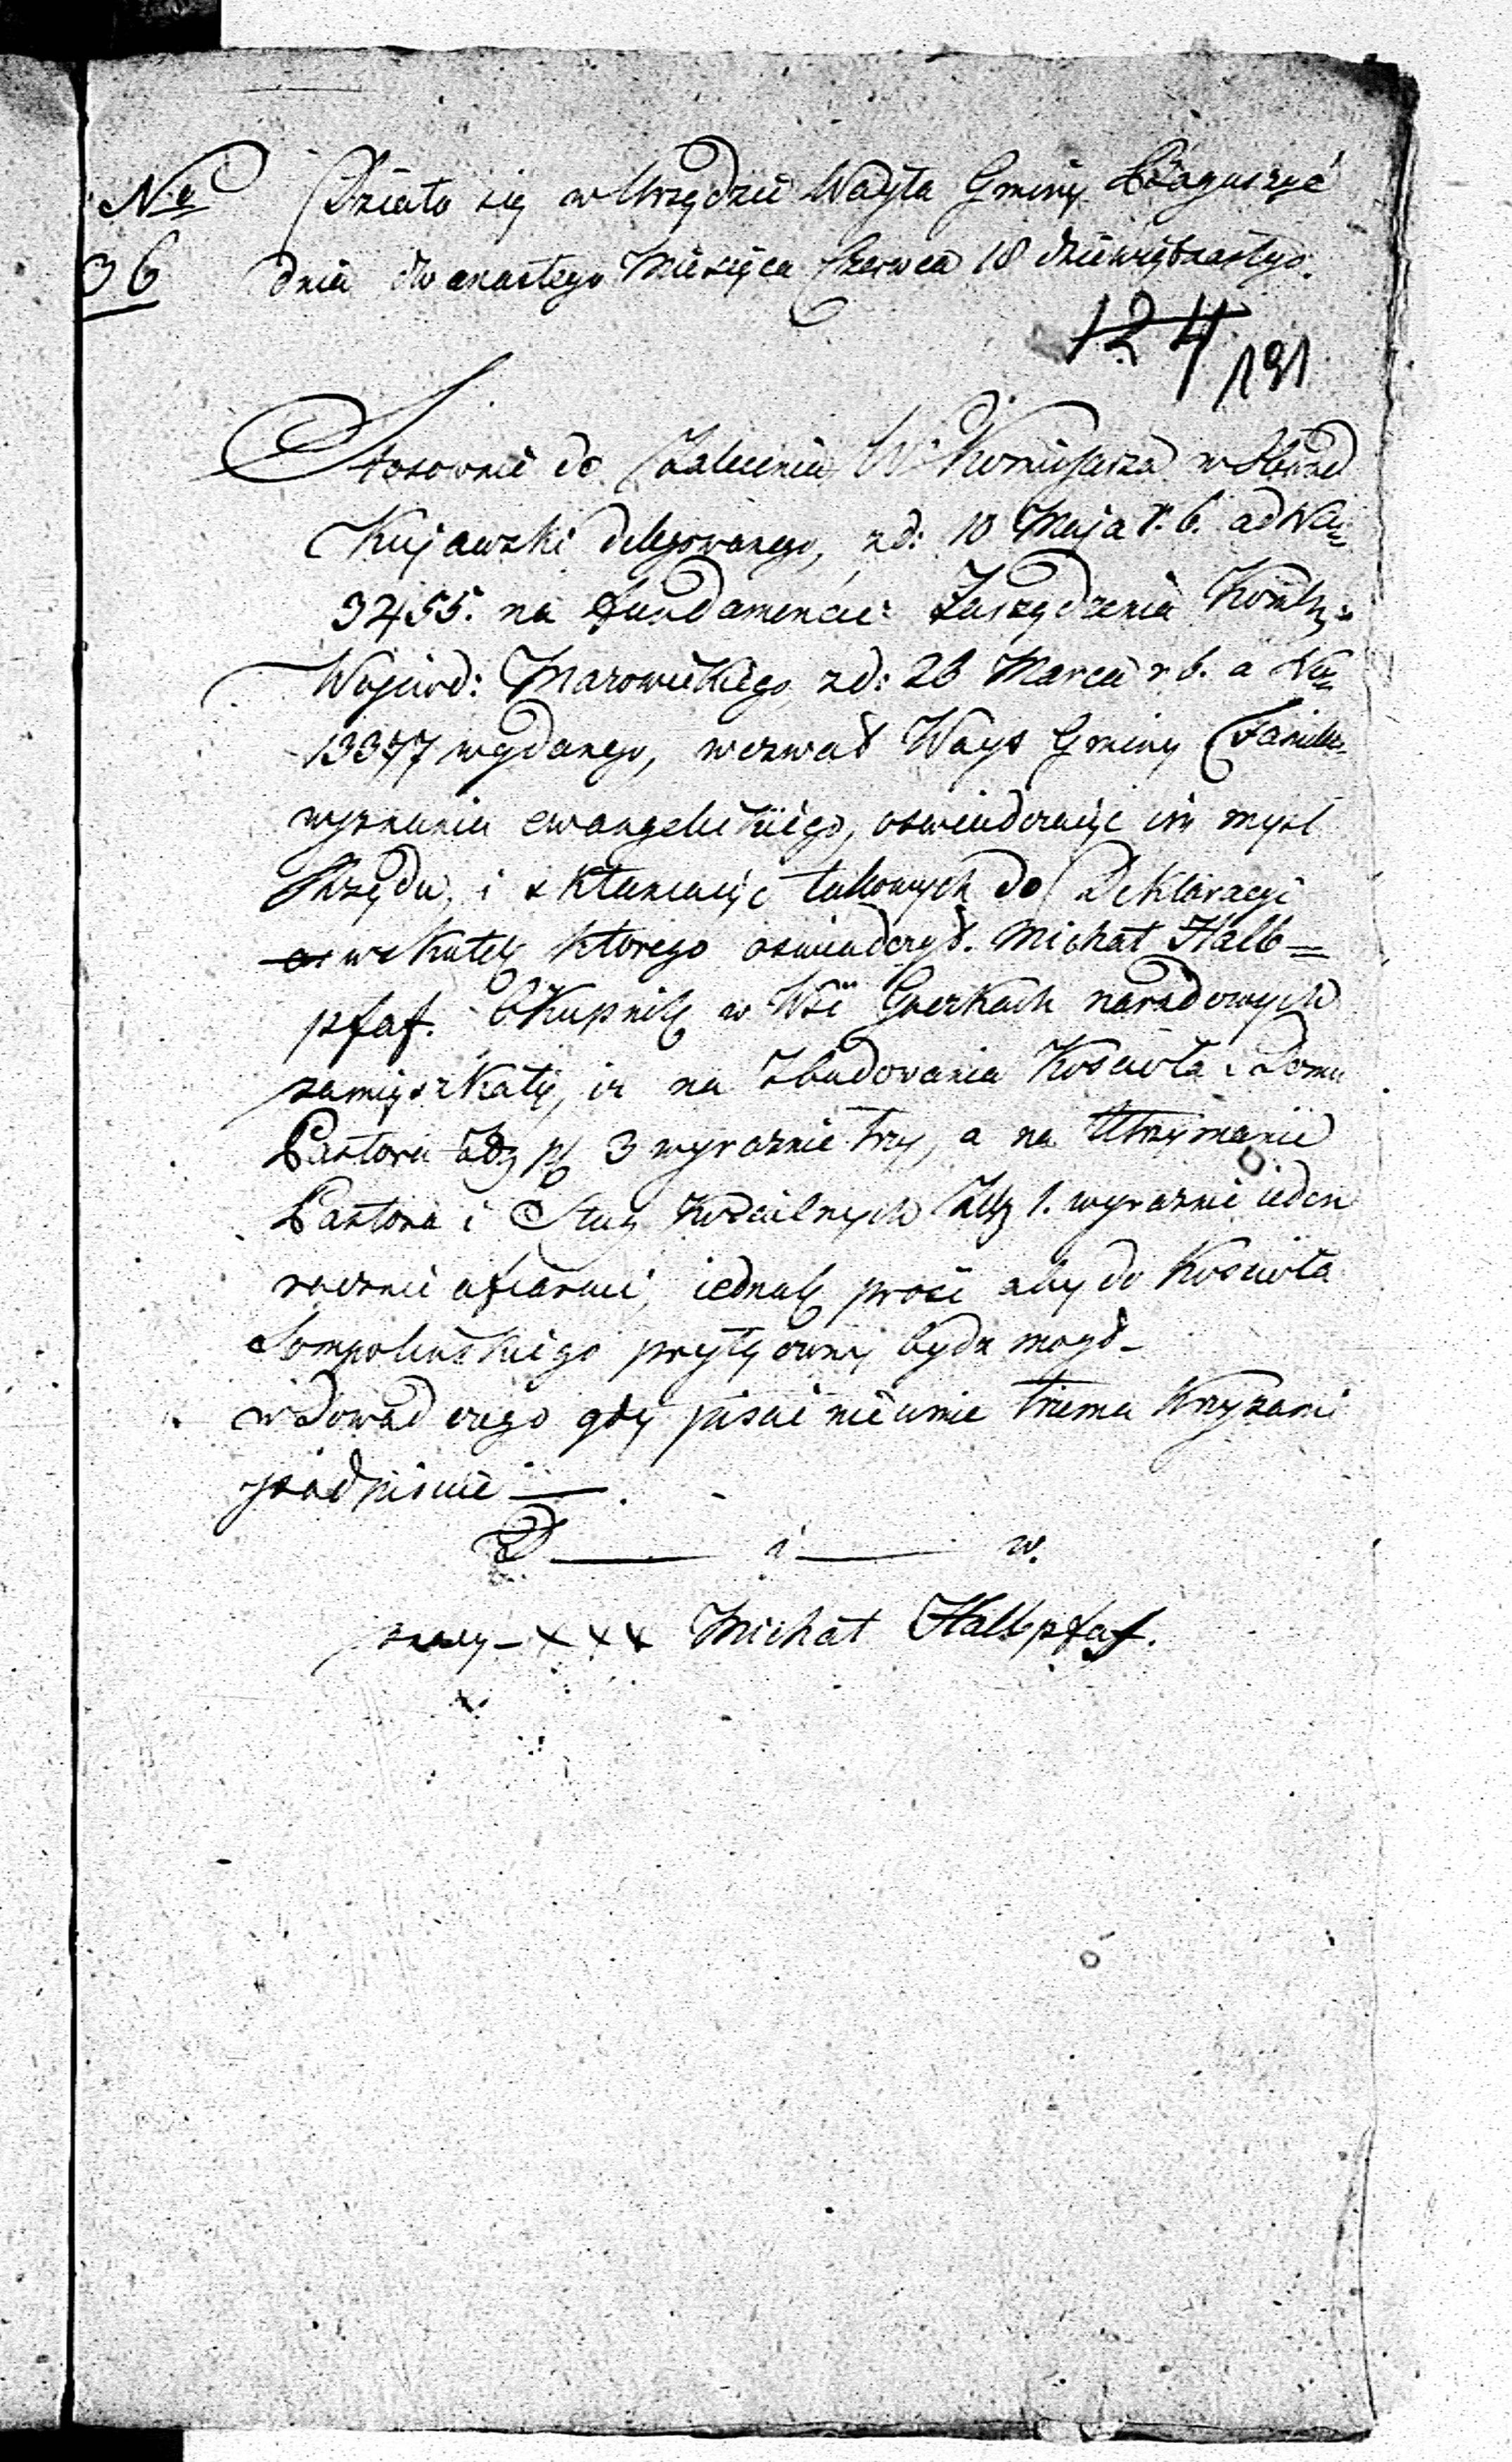 Nro Działo się w Urzędzie Wayta Gminy Boguszyc
36 dnia dwanastego Miesięca Czerwca 18 dziewiętnastego.
124 191
Stosownie do Zalecenia W. Komissarza w Obwod
Kujawski delegowanego, z d: 10 Maja r. b. ad Nru
3455. na fundamencie Zarządzenia Komsy
Wojewd: Mazowieckiego z d: 26 Marca r. b. a Nro
13377 wydanego, wezwał Wayt Gminy Familie
wyznania ewangelickiego, oswiadczaiąc im mysl
Rządu, i skłaniaiąc takowych do Deklaracyi
wskutek którego oswiadczył. Michał Halb=
pfaf. Okupnik w Wsi Gaerkach narodowych
zamięszkały, iż na Zbudowania Kościoła i Domu
Pastora Złp 3 wyraznie trzy, a na Utrzymanie
Pastora i Sług Kościelnych Złp 1. wyraznie ieden
rocznie ofiaruie, iednak prosi aby do Kościoła
Sompolinskiego przyłączony bydz mogł -
w Dowod czego gdy pisać nieumie trzema Krzyzami
podpisuie —.
D — i — w.
xxx Michał Halbpfaf.